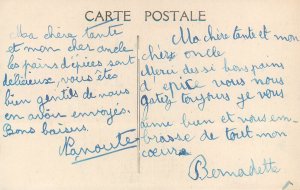 CARTE POSTALE
Ma chère tante
et mon cher oncle
les pains d'épices sont
délicieux, vous êtes
bien gentils de nous
en avoir envoyés.
Bons baisers.
Nanoute
Ma chère tante et mon
chère oncle
Merci des si bons pains
d'epice vous nous
gatez toujours je vous
aime bien et vous em-
brasse de tout mon
coeur
Bernadette